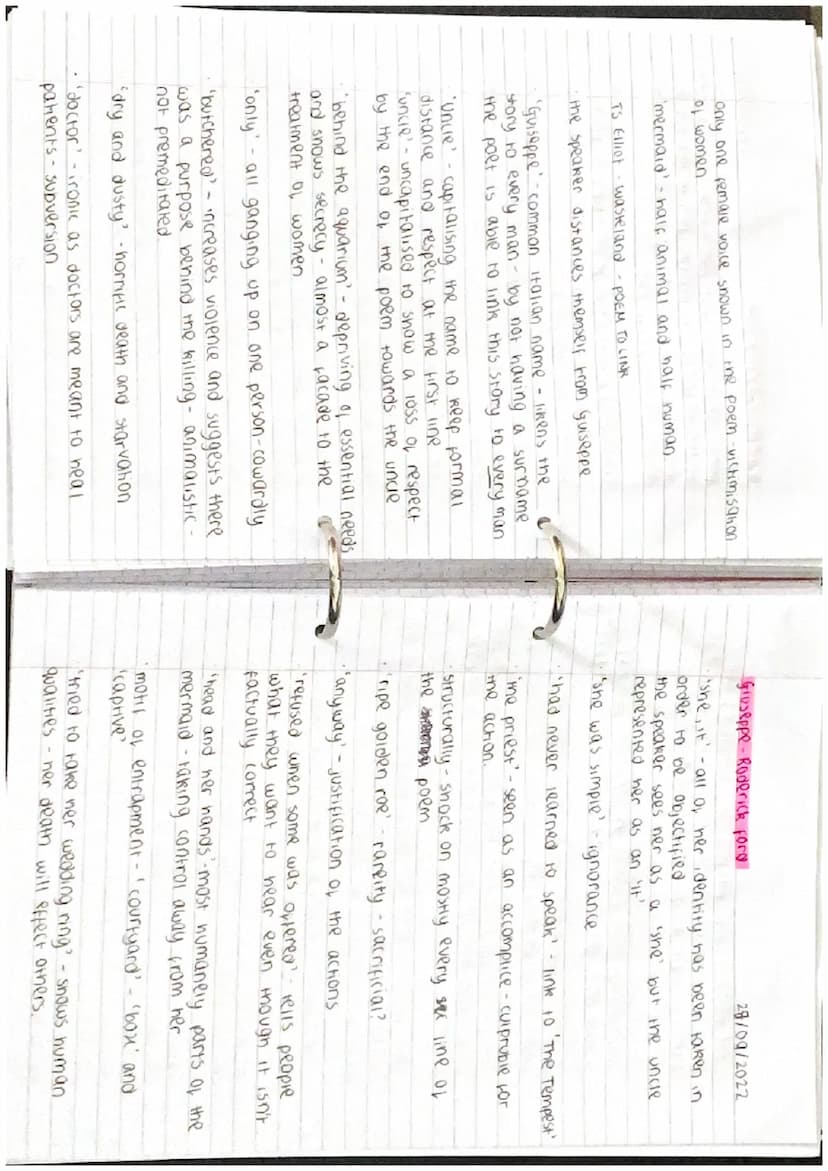 only one female voice shown in the poem - victimisation
of women
'mermaid' - half animal and half human
TS Elliot - wasteland - POEM TO LINK
· the speaker distances themself from Guiseppe
· 'Guiseppe' - common italian name - likens the
story to every man - by not having a surname
the poet is able to link this story to every man
· 'Uncle' - capitalising the name to keep formal
distance and respect at the first line
· 'uncle' - uncapitalised to show a loss of respect
by the end of the poem towards the uncle
· 'behind the aquarium' - depriving of essential needs
and shows secrecy - almost a facade to the
treatment of women
· 'only' - all ganging up on one person - cowardly
· 'butchered' - increases violence and suggests there
was a purpose behind the killing - animalistic -
not premeditated
· 'dry and dusty' - horrific death and starvation
· 'doctor' - ironic as doctors are meant to heal
patients - subversion
Giuseppe - Roderick Ford 29/09/2022
· 'she, it' - all of her identity has been taken in
order to be objectified
the speaker sees her as a 'she' but the uncle
represented her as an 'it'
· 'she was simple' - ignorance
· 'had never learned to speak' - link to 'The Tempest'
· 'the priest' - seen as an accomplice - culpruble for
the action
· structurally - shock on mostly every line of
the poem
· 'ripe golden roe' - rareity - sacrificial?
· 'anyway' - justification of the actions
· 'refused when some was offered' - tells people
what they want to hear even though it isn't
factually correct
· 'head and her hands' - most humanely parts of the
mermaid - taking control away from her
· motif of entrapment - 'courtyard' - 'box' and
'captive'
· 'tried to take her wedding ring' - shows human
qualities - her death will effect others.